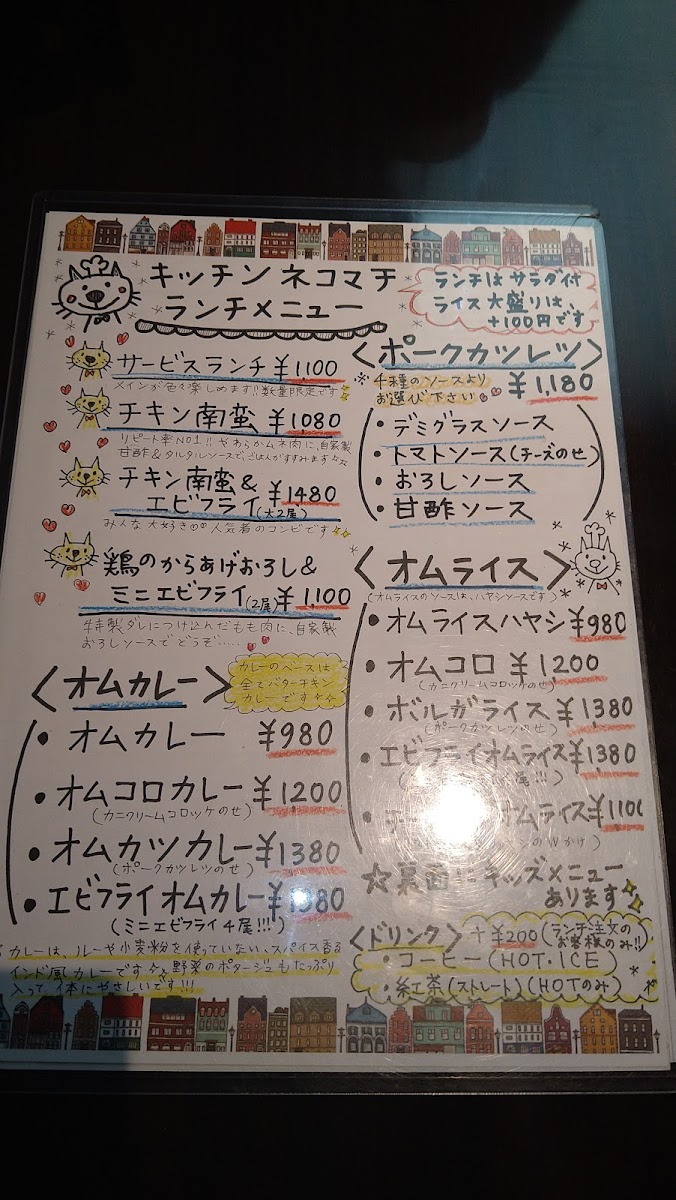 キッチンネコマチ
ランチメニュー
ランチはサラダ付
ライス大盛りは、
+100円です
サービスランチ ¥1,100
メインが色々楽しめます!!数量限定です
チキン南蛮 ¥1080
リピート率NO1!!やわらかムネ肉に、自家製
甘酢&タルタルソースで、ごはんがすすみます
チキン南蛮&
エビフライ(大2尾) ¥1480
みんな大好き♡♡人気者のコンビです
鶏のからあげおろし&
ミニエビフライ(2尾) ¥1,100
特製ダレにつけ込んだもも肉に、自家製
おろしソースでどうぞ.....
<オムカレー>
カレーのベースは
全てバターチキン
カレーです
・オムカレー ¥980
・オムコロカレー ¥1200
(カニクリームコロッケのせ)
・オムカツカレー ¥1380
(ポークカツレツのせ)
・エビフライオムカレー ¥1380
(ミニエビフライ4尾!!!)
カレーは、ルーや小麦粉を使っていない、スパイス香る
インド風カレーです 野菜のポタージュもたっぷり
入って、体にやさしいです!!!
<ポークカツレツ>
※4種のソースより
お選び下さい ¥1,180
・デミグラスソース
・トマトソース(チーズのせ)
・おろしソース
・甘酢ソース
<オムライス>
(オムライスのソースは、ハヤシソースです)
・オムライスハヤシ ¥980
・オムコロ ¥1200
(カニクリームコロッケのせ)
・ボルガライス ¥1380
(ポークカツレツのせ)
・エビフライオムライス ¥1380
尾!!!)
オムライス ¥1100
のWがけ)
☆裏面に キッズメニュー
あります
<ドリンク> +¥200 (ランチ注文のお客様のみ!!)
・コーヒー(HOT・ICE)
・紅茶(ストレート)(HOTのみ)